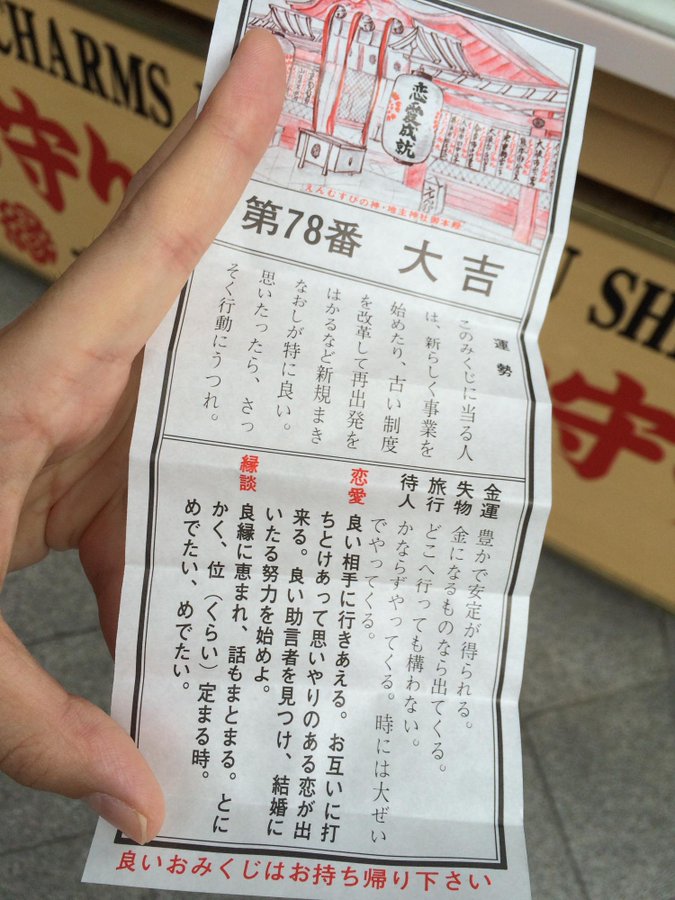 CHARMS
守り
恋愛成就
えんむすびの神・地主神社御本殿
第78番 大吉
運勢
このみくじに当る人
は、新らしく事業を
始めたり、古い制度
を改革して再出発を
はかるなど新規まき
なおしが特に良い。
思いたったら、さっ
そく行動にうつれ。
金運 豊かで安定が得られる。
失物 金になるものなら出てくる。
旅行 どこへ行っても構わない。
待人 かならずやってくる。時には大ぜい
でやってくる。
恋愛 良い相手に行きあえる。お互いに打
ちとけあって思いやりのある恋が出
来る。良い助言者を見つけ、結婚に
いたる努力を始めよ。
縁談 良縁に恵まれ、話もまとまる。とに
かく、位（くらい）定まる時。
めでたい、めでたい。
良いおみくじはお持ち帰り下さい
守